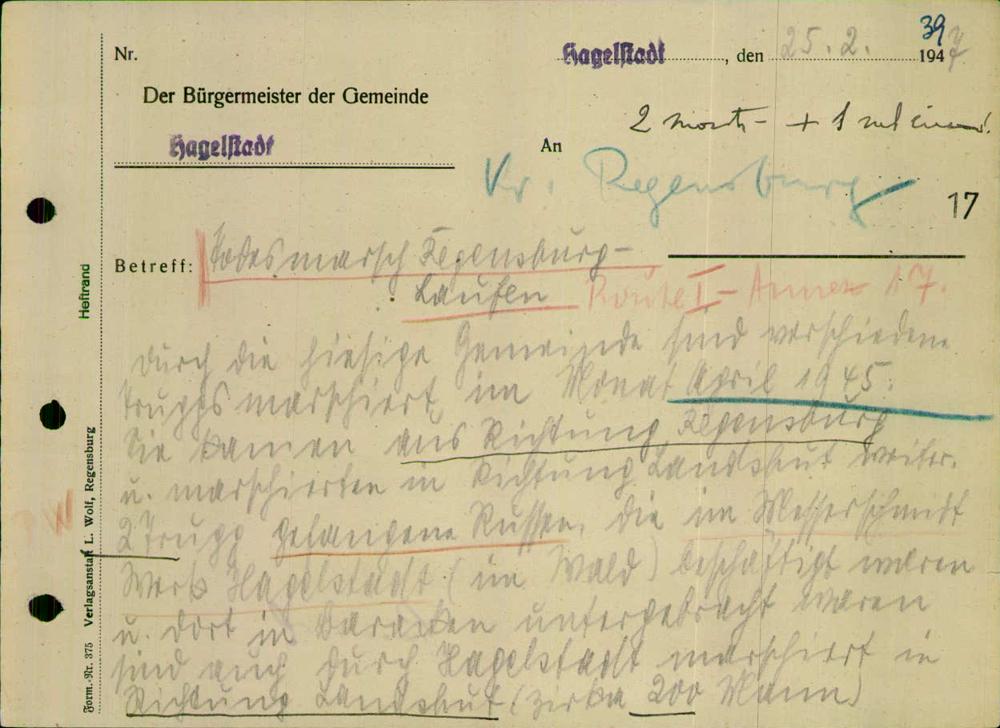 39
Nr. Hagelstadt, den 25.2. 1947
Der Bürgermeister der Gemeinde
2 + 1
Hagelstadt
An
Kr. Regensburg
17
Betreff: Todesmarsch Regensburg-
Laufen Route I - Annex 17.
Durch die hiesige Gemeinde sind verschiedene
Trupps marschiert im Monat April 1945.
Sie kamen aus Richtung Regensburg
u. marschierten in Richtung Landshut weiter.
2 Trupp gefangene Russen, die im Messerschmidt
Werk Hagelstadt (im Wald) beschäftigt waren
u. dort in Baracken untergebracht waren
sind auch durch Hagelstadt marschiert in
Richtung Landshut (zirka 200 Mann)
Heftrand
Form.-Nr. 375 Verlagsanstalt L. Wolf, Regensburg